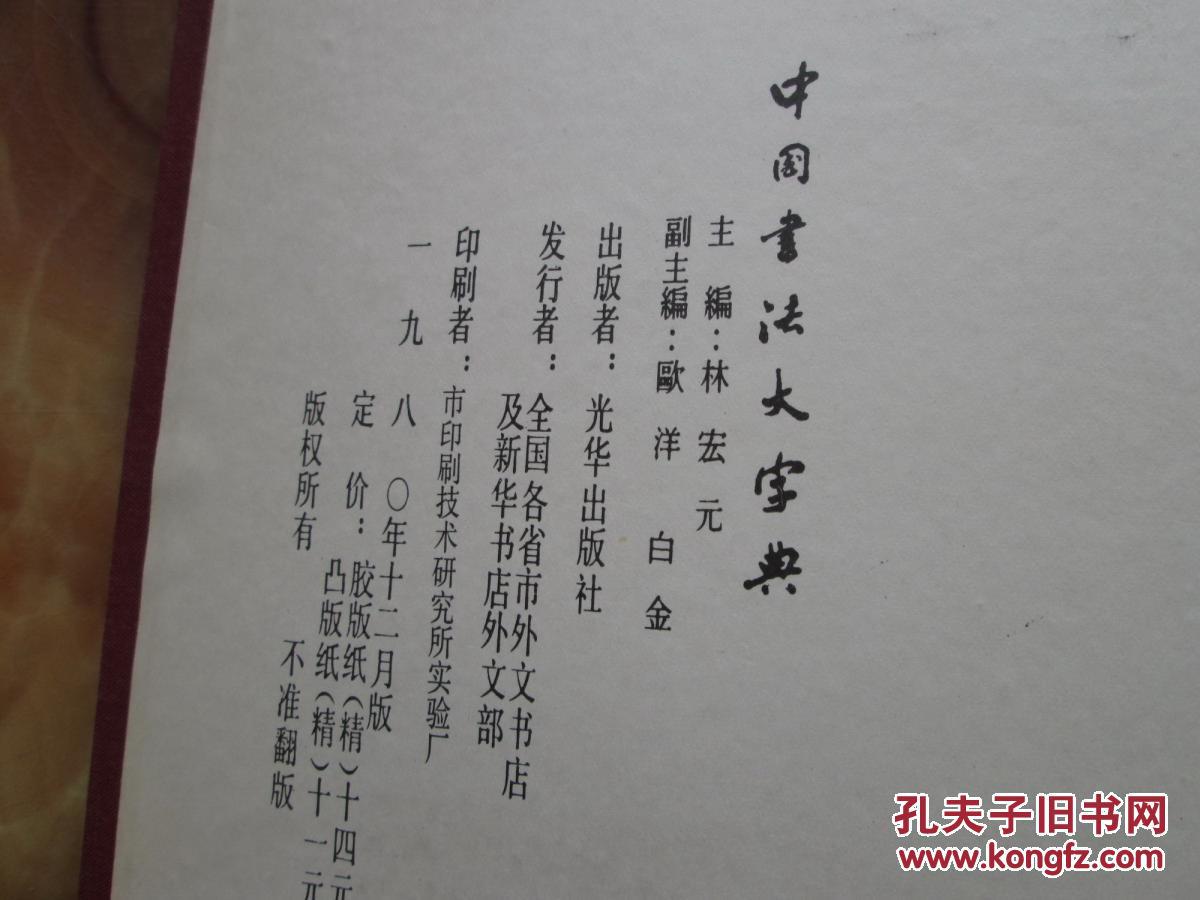 中国書法大字典
主編：林宏元
副主編：歐洋白金
出版者：光华出版社
发行者：全国各省市外文书店
及新华书店外文部
印刷者：市印刷技术研究所实验厂
一九八〇年十二月版
定价：胶版纸（精）十四元
凸版纸（精）十一元
版权所有 不准翻版
孔夫子旧书网
www.kongfz.com